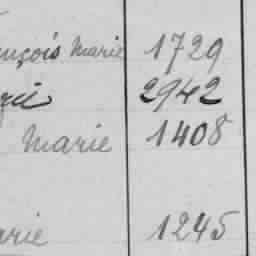 nçois Marie 1729
rie 2942
Marie 1408
arie 1245